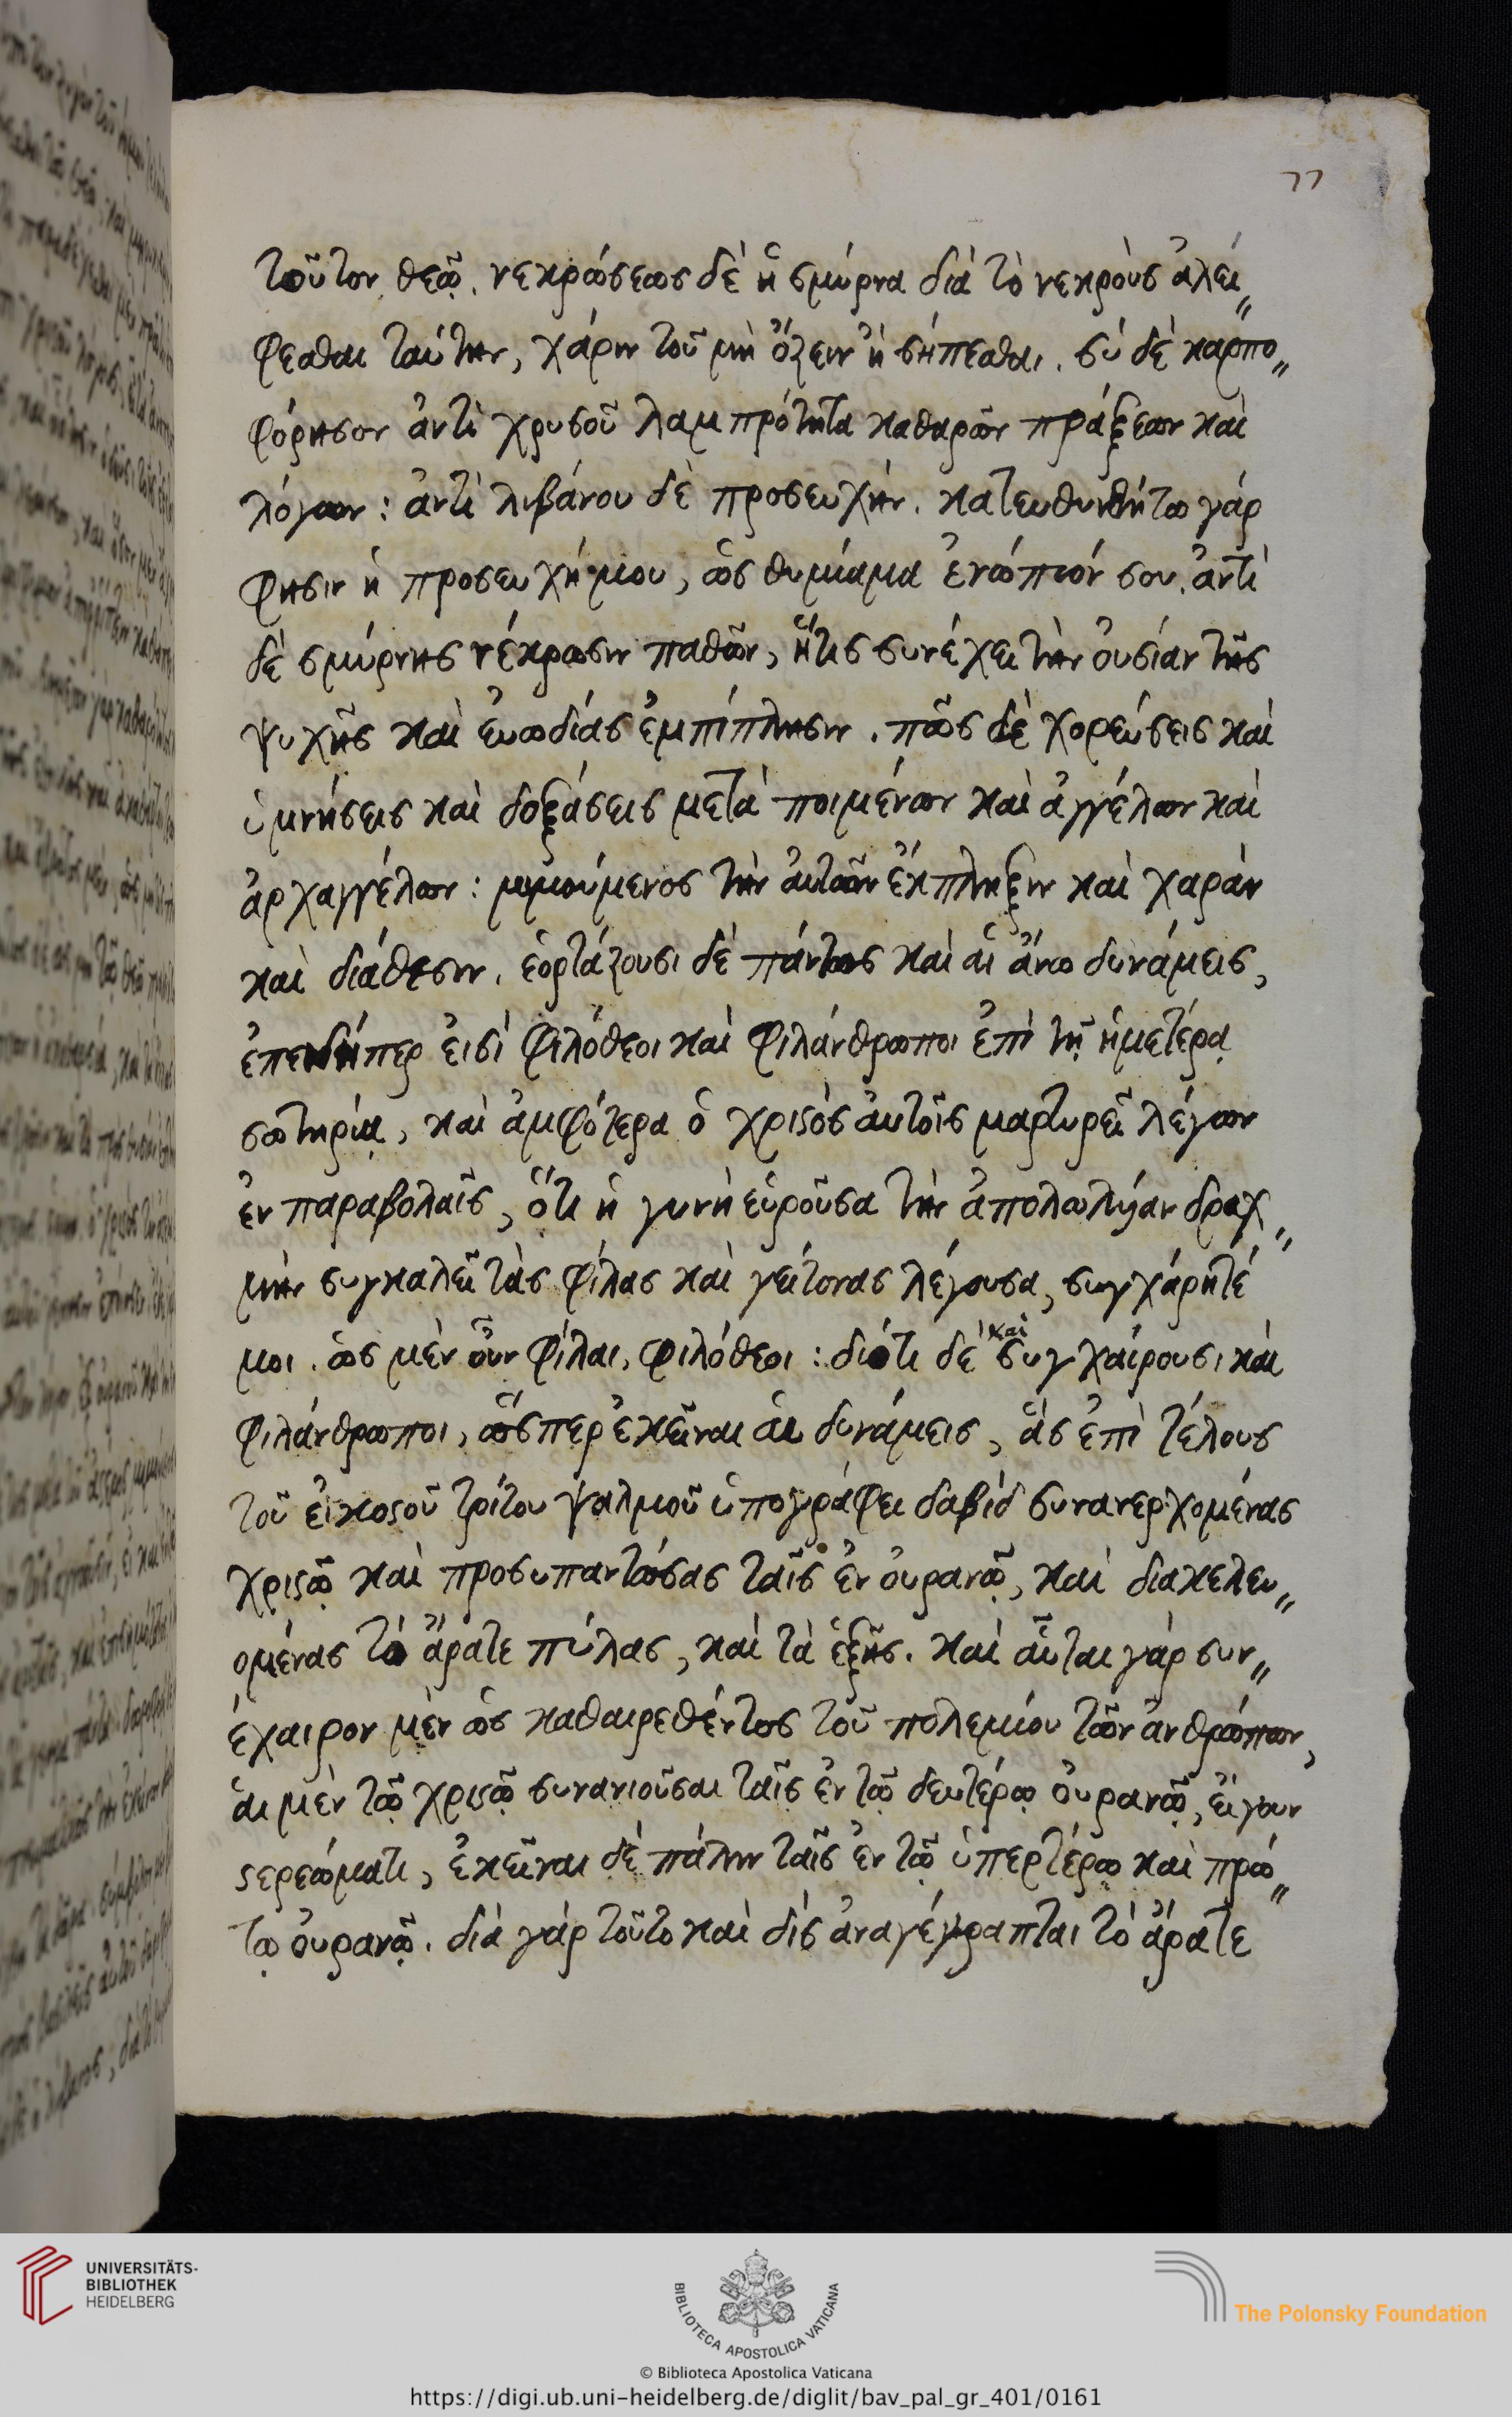 77
τοῦτον θεῷ. νεκρώσεως δὲ ἡ σμύρνα διὰ τὸ νεκροὺς ἀλεί〃
φεσθαι ταύτην, χάριν τοῦ μὴ ὄζειν ἢ σήπεσθαι. σὺ δὲ καρπο〃
φόρησον ἀντὶ χρυσοῦ λαμπρότητα καθαρῶν πράξεων καὶ
λόγων: ἀντὶ λιβάνου δὲ προσευχήν. κατευθυνθήτω γάρ
φησιν ἡ προσευχή μου, ὡς θυμίαμα ἐνώπιόν σου. ἀντὶ
δὲ σμύρνης νέκρωσιν παθῶν, ἥτις συνέχει τὴν οὐσίαν τῆς
ψυχῆς καὶ εὐωδίας ἐμπίπλησιν. πῶς δὲ χορεύσεις καὶ
ὑμνήσεις καὶ δοξάσεις μετὰ ποιμένων καὶ ἀγγέλων καὶ
ἀρχαγγέλων: μιμούμενος τὴν αὐτῶν ἔκπληξιν καὶ χαρὰν
καὶ διάθεσιν. ἑορτάζουσι δὲ πάντως καὶ αἱ ἄνω δυνάμεις,
ἐπειδήπερ εἰσὶ φιλόθεοι καὶ φιλάνθρωποι ἐπὶ τῇ ἡμετέρᾳ
σωτηρίᾳ, καὶ ἀμφότερα ὁ χριϛὸς αὐτοῖς μαρτυρεῖ λέγων
ἐν παραβολαῖς, ὅτι ἡ γυνὴ εὑροῦσα τὴν ἀπολωλυῖαν δραχ〃
μὴν συγκαλεῖ τὰς φίλας καὶ γείτονας λέγουσα, συγχάρητέ
μοι. ὡς μὲν οὖν φίλαι, φιλόθεοι: διότι δὲ καὶ συγχαίρουσι καὶ
φιλάνθρωποι, ὥσπερ ἐκεῖναι αἱ δυνάμεις, ἃς ἐπὶ τέλους
τοῦ εἰκοϛοῦ τρίτου ψαλμοῦ ὑπογράφει δαβίδ συνανερχομένας
χριϛῷ καὶ προσυπαντώσας ταῖς ἐν οὐρανῷ, καὶ διακελευ〃
ομένας τὸ ἄρατε πύλας, καὶ τὰ ἑξῆς. καὶ αὗται γὰρ συν〃
έχαιρον μὲν ὡς καθαιρεθέντος τοῦ πολεμίου τῶν ἀνθρώπων,
αἱ μὲν τῷ χριϛῷ συνανιοῦσαι ταῖς ἐν τῷ δευτέρῳ οὐρανῷ, εἴγουν
ϛερεώματι, ἐκεῖναι δὲ πάλιν ταῖς ἐν τῷ ὑπερτέρῳ καὶ πρώ〃
τῳ οὐρανῷ. διὰ γὰρ τοῦτο καὶ δὶς ἀναγέγραπται τὸ ἄρατε
UNIVERSITÄTS-
BIBLIOTHEK
HEIDELBERG
BIBLIOTECA APOSTOLICA VATICANA
The Polonsky Foundation
© Biblioteca Apostolica Vaticana
https://digi.ub.uni-heidelberg.de/diglit/bav_pal_gr_401/0161